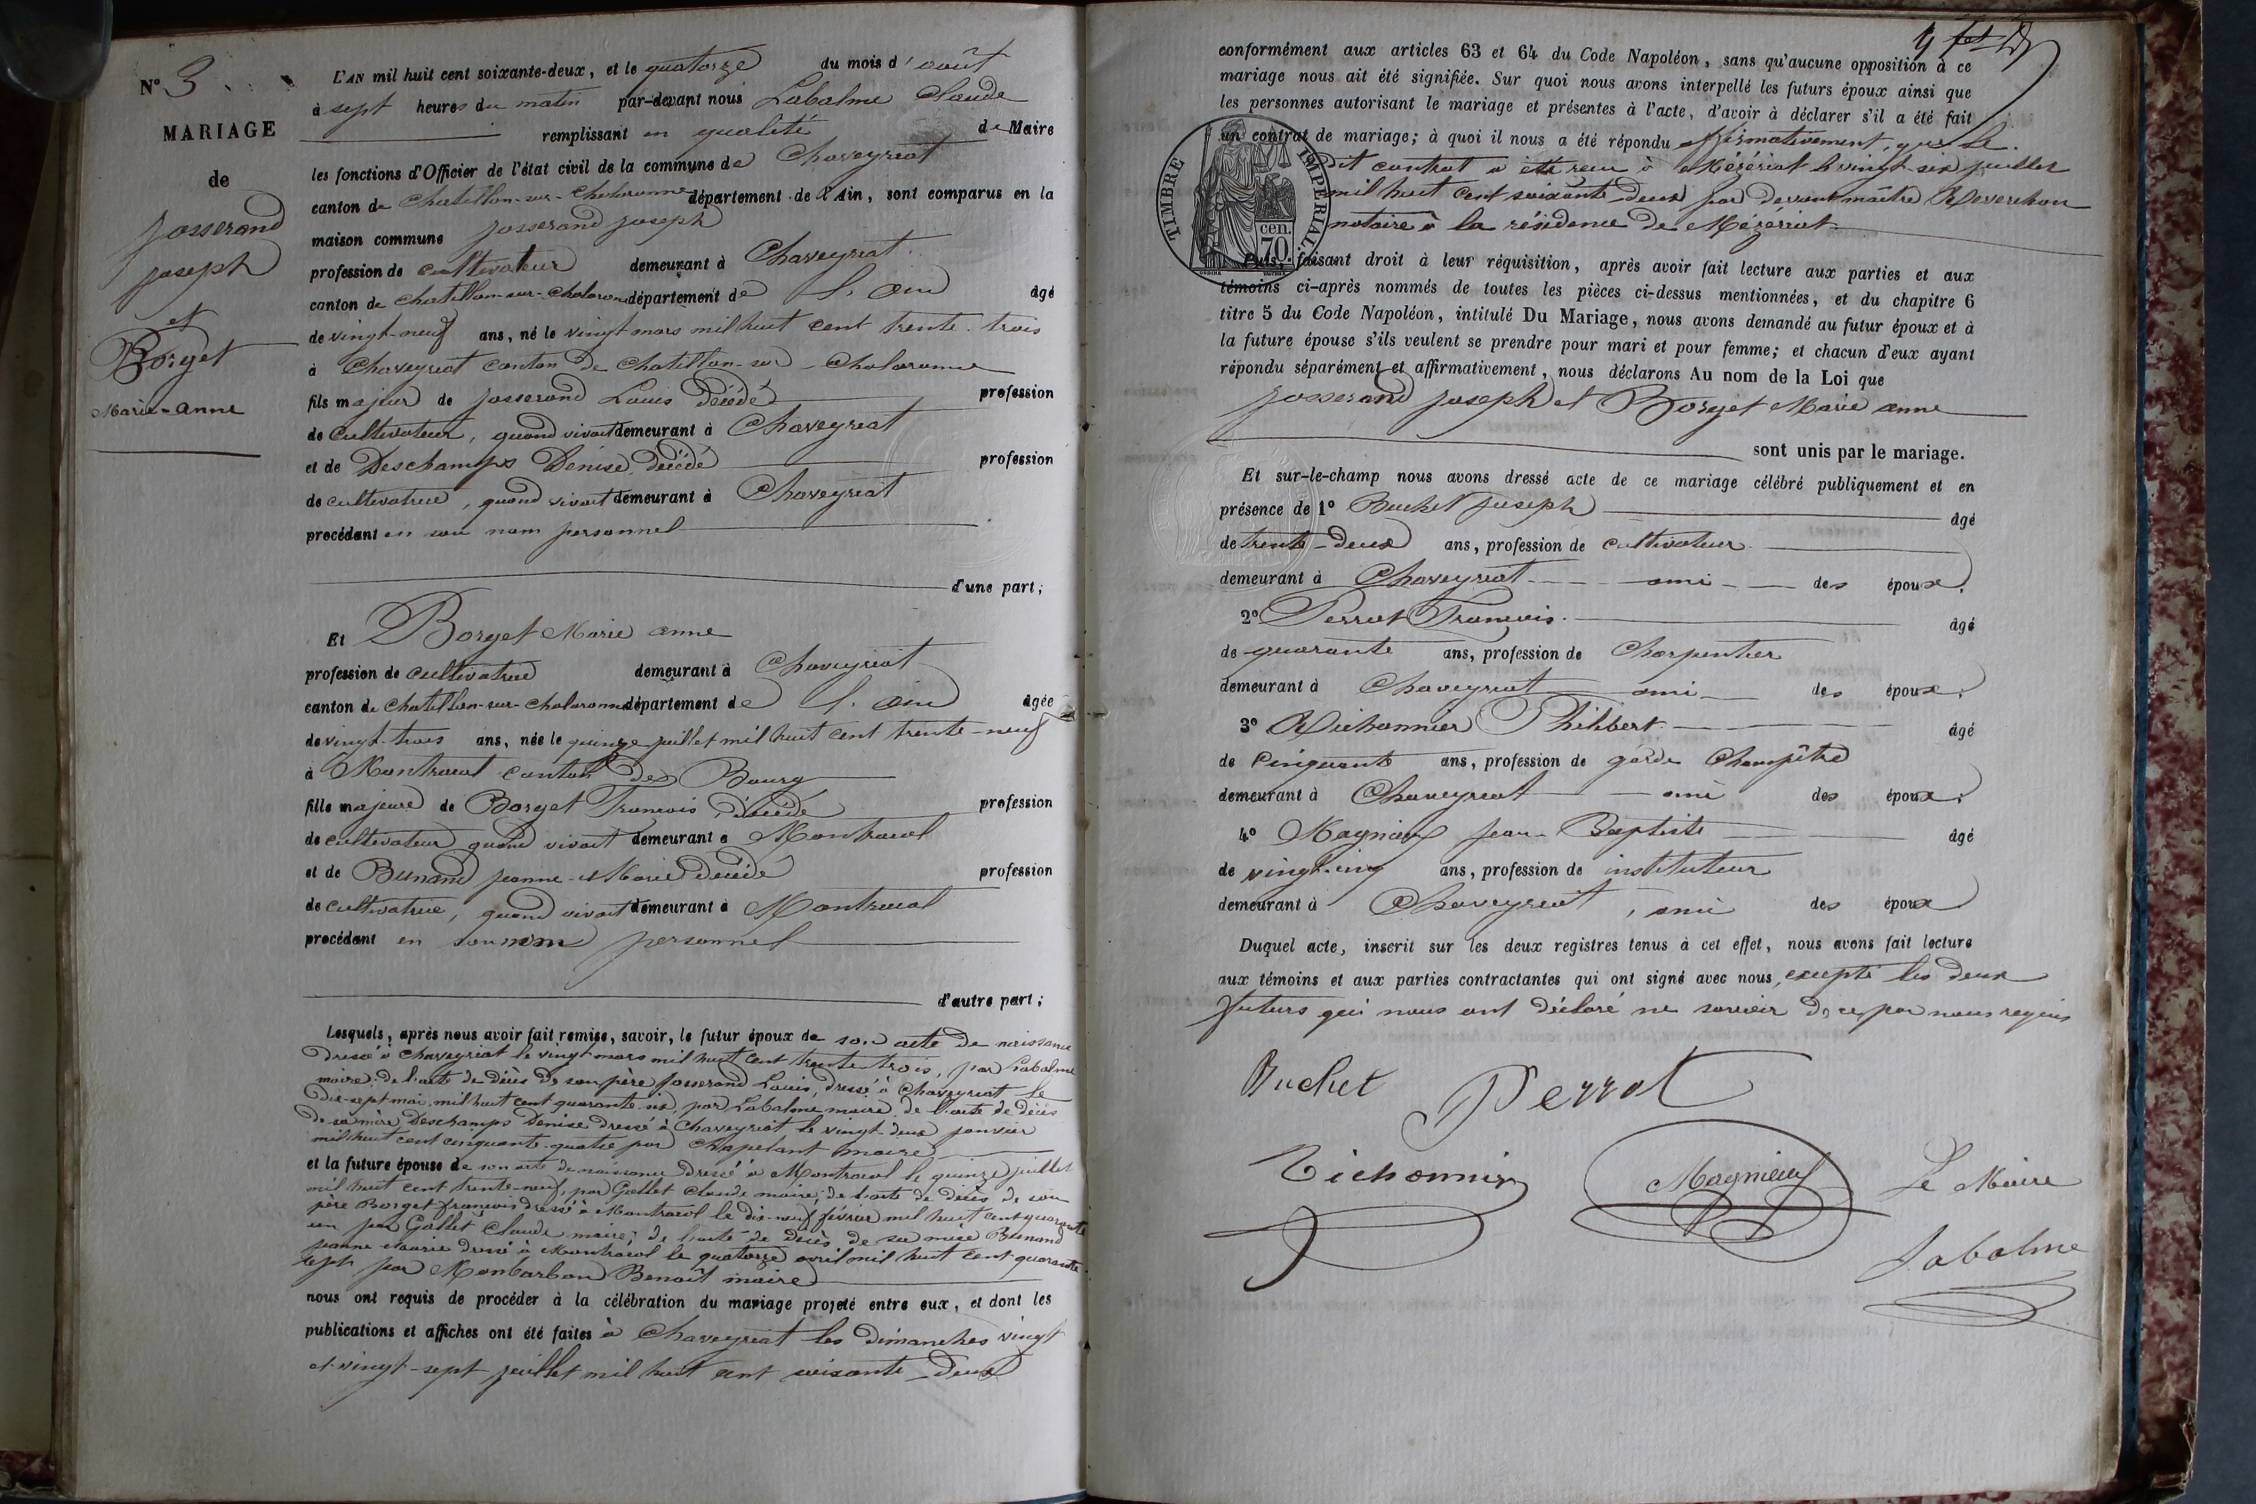 N° 3
MARIAGE
de
Josserand
Joseph
et
Borget
Marie-anne
L'AN mil huit cent soixante-deux, et le quatorze du mois d'août
à sept heures du matin par-devant nous Labalme Claude
remplissant en qualité de Maire
les fonctions d'Officier de l'état civil de la commune de Chaveyriat
canton de Chatillon-sur-Chalaronne département de l'Ain, sont comparus en la
maison commune Josserand Joseph
profession de cultivateur demeurant à Chaveyriat
canton de Chatillon-sur-Chalaronne département de l'ain âgé
de vingt-neuf ans, né le vingt mars mil huit cent trente-trois
à Chaveyriat canton de Chatillon-sur-Chalaronne
fils majeur de Josserand Louis décédé profession
de cultivateur, quand vivait demeurant à Chaveyriat
et de Deschamps Denise, décédé profession
de cultivatrice, quand vivait demeurant à Chaveyriat
procédant en son nom personnel
d'une part;
Et Borget Marie anne
profession de cultivatrice demeurant à Chaveyriat
canton de Chatillon-sur-Chalaronne département de l'ain âgée
de vingt-trois ans, née le quinze juillet mil huit cent trente-neuf
à Montracol canton de Bourg
fille majeure de Borget François décédé profession
de cultivateur quand vivait demeurant à Montracol
et de Bunand Jeanne-Marie décédé profession
de cultivatrice, quand vivait demeurant à Montracol
procédant en son nom personnel
d'autre part;
Lesquels, après nous avoir fait remise, savoir, le futur époux de son acte de naissance
dressé à Chaveyriat le vingt mars mil huit cent trente trois, par Labalme
maire; de l'acte de décès de son père Josserand Louis, dressé à Chaveyriat le
dix-sept mai mil huit cent quarante-six, par Labalme maire, de l'acte de décès
de sa mère Deschamps Denise dressé à Chaveyriat le vingt-deux janvier
mil huit cent cinquante-quatre par Chapelant maire
et la future épouse de son acte de naissance dressé à Montracol le quinze juillet
mil huit cent trente-neuf, par Gallet Claude maire; de l'acte de décès de son
père Borget françois dressé à Montracol le dix-neuf février mil huit cent quarante
un par Gallet Claude maire; de l'acte de décès de sa mère Bunand
Jeanne Marie dressé à Montracol le quatorze avril mil huit cent quarante
sept par Monbarbon Benoît maire
nous ont requis de procéder à la célébration du mariage projeté entre eux, et dont les
publications et affiches ont été faites à Chaveyriat les dimanches vingt
et vingt-sept juillet mil huit cent soixante-deux
conformément aux articles 63 et 64 du Code Napoléon, sans qu'aucune opposition à ce
mariage nous ait été signifiée. Sur quoi nous avons interpellé les futurs époux ainsi que
les personnes autorisant le mariage et présentes à l'acte, d'avoir à déclarer s'il a été fait
un contrat de mariage; à quoi il nous a été répondu affirmativement, que le
dit contrat a été reçu à Mézériat le vingt-six juillet
mil huit cent soixante-deux par devant maître Reverchon
notaire à la résidence de Mézériat
TIMBRE IMPÉRIAL.
cen.
70.
Puis, faisant droit à leur réquisition, après avoir fait lecture aux parties et aux
témoins ci-après nommés de toutes les pièces ci-dessus mentionnées, et du chapitre 6
titre 5 du Code Napoléon, intitulé Du Mariage, nous avons demandé au futur époux et à
la future épouse s'ils veulent se prendre pour mari et pour femme; et chacun d'eux ayant
répondu séparément et affirmativement, nous déclarons Au nom de la Loi que
Josserand Joseph et Borget Marie anne
sont unis par le mariage.
Et sur-le-champ nous avons dressé acte de ce mariage célébré publiquement et en
présence de 1° Buchet Joseph âgé
de trente-deux ans, profession de cultivateur
demeurant à Chaveyriat ami des époux.
2° Perrot François. âgé
de quarante ans, profession de Charpentier
demeurant à Chaveyriat ami des époux.
3° Tichonnier Philibert âgé
de Cinquante ans, profession de garde Champêtre
demeurant à Chaveyriat ami des époux.
4° Magnieux Jean-Baptiste âgé
de vingt-cinq ans, profession de instituteur
demeurant à Chaveyriat, ami des époux
Duquel acte, inscrit sur les deux registres tenus à cet effet, nous avons fait lecture
aux témoins et aux parties contractantes qui ont signé avec nous, excepté les deux
futurs qui nous ont déclaré ne savoir de ce par nous requis
Buchet Perrot
Tichonnier Magnieux Le Maire
Labalme